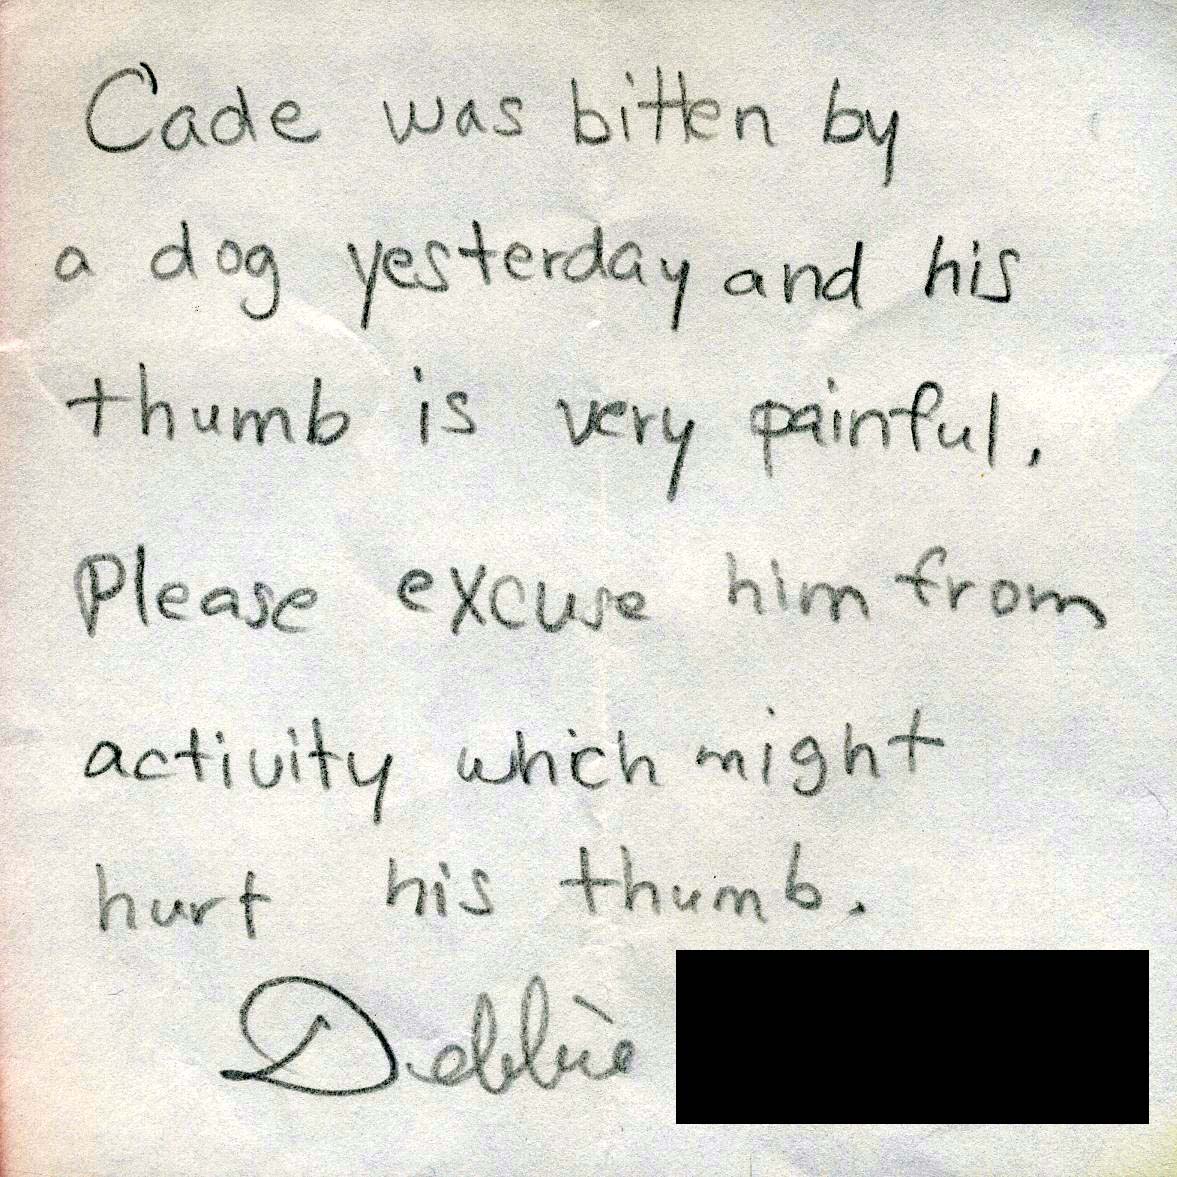 Cade was bitten by
a dog yesterday and his
thumb is very painful.
Please excuse him from
activity which might
hurt his thumb.
Debbie